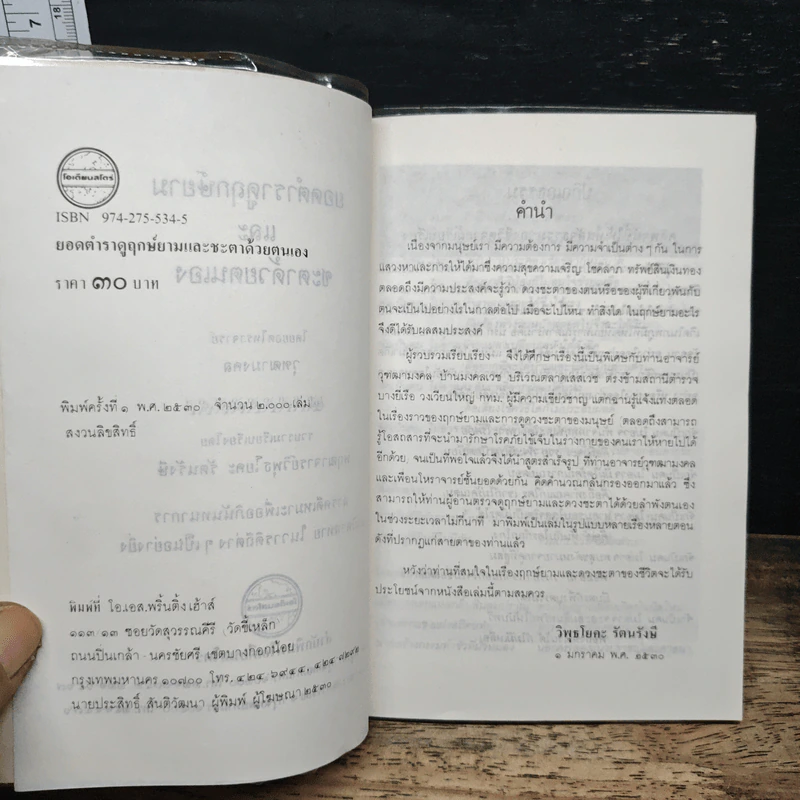 7
18
โอเดียนสโตร์
ISBN 974-275-534-5
ยอดตำราดูฤกษ์ยามและชะตาด้วยตนเอง
ราคา ๓๐ บาท
พิมพ์ครั้งที่ ๑ พ.ศ. ๒๕๓๐ จำนวน ๒,๐๐๐ เล่ม
สงวนลิขสิทธิ์
พิมพ์ที่ โอ.เอส.พริ้นติ้ง เฮ้าส์
๑๑๓ ๑๓ ซอยวัดสุวรรณคีรี (วัดขี้เหล็ก
ถนนปิ่นเกล้า - นครชัยศรี เขตบางกอกน้อย
กรุงเทพมหานคร ๑๐๗๐๐ โทร. ๔๒๔ ๖๙๔๔, ๔๒๔ ๗๒๙๒
นายประสิทธิ์ สันติวัฒนา ผู้พิมพ์ ผู้โฆษณา ๒๕๓๐
คำนำ
เนื่องจากมนุษย์เรา มีความต้องการ มีความจำเป็นต่าง ๆ กัน ในการ
แสวงหาและการให้ได้มาซึ่งความสุขความเจริญ โชคลาภ ทรัพย์สินเงินทอง
ตลอดถึงมีความประสงค์จะรู้ว่า ดวงชะตาของตนหรือของผู้ที่เกี่ยวพันกับ
ตนจะเป็นไปอย่างไรในกาลต่อไป เมื่อจะไปไหน ทำสิ่งใด ในฤกษ์ยามอะไร
จึงดีได้รับผลสมประสงค์
ผู้รวบรวมเรียบเรียง จึงได้ศึกษาเรื่องนี้เป็นพิเศษกับท่านอาจารย์
วุฑฒามงคล บ้านมงคลเวช บริเวณตลาดเสสเวช ตรงข้ามสถานีตำรวจ
บางยี่เรือ วงเวียนใหญ่ กทม. ผู้มีความเชี่ยวชาญ แตกฉานรู้แจ้งแทงตลอด
ในเรื่องราวของฤกษ์ยามและการดูดวงชะตาของมนุษย์ ตลอดถึงสามารถ
รู้โอสถสารที่จะนำมารักษาโรคภัยไข้เจ็บในร่างกายของคนเราให้หายไปได้
อีกด้วย, จนเป็นที่พอใจแล้วจึงได้นำสูตรสำเร็จรูป ที่ท่านอาจารย์วุฑฒามงคล
และเพื่อนโหราจารย์ชั้นยอดด้วยกัน คิดคำนวณกลั่นกรองออกมาแล้ว ซึ่ง
สามารถให้ท่านผู้อ่านตรวจดูฤกษ์ยามและดวงชะตาได้ด้วยลำพังตนเอง
ในช่วงระยะเวลาไม่กี่นาที มาพิมพ์เป็นเล่มในรูปแบบหลายเรื่องหลายตอน
ดังที่ปรากฏแก่สายตาของท่านแล้ว
หวังว่าท่านที่สนใจในเรื่องฤกษ์ยามและดวงชะตาของชีวิตจะได้รับ
ประโยชน์จากหนังสือเล่มนี้ตามสมควร
วิพุธโยคะ รัตนรังษี
๑ มกราคม พ.ศ. ๒๕๓๐